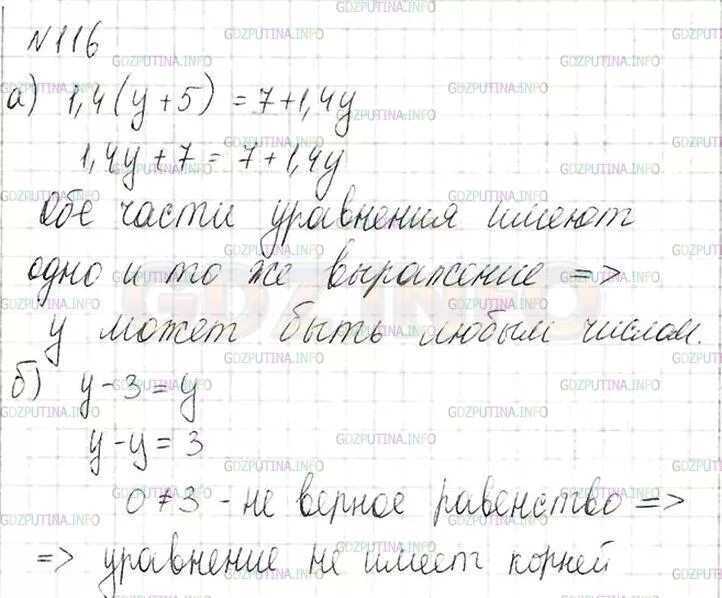 №116
а) 1,4(y + 5) = 7 + 1,4y
1,4y + 7 = 7 + 1,4y
Обе части уравнения имеют
одно и то же выражение =>
y может быть любым числом.
б) y - 3 = y
y - y = 3
0 ≠ 3 - не верное равенство =>
=> уравнение не имеет корней
GDZ.INFO
GDZPUTINA.INFO